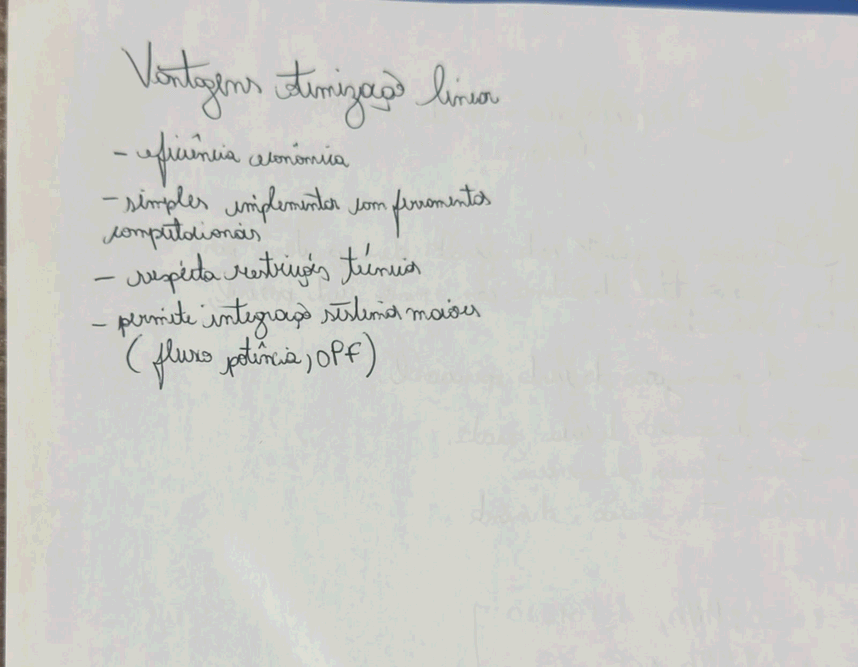 Vantagens otimização linear
- eficiência econômica
- simples implementar com ferramentas
computacionais
- respeita restrições técnicas
- permite integração sistemas maiores
(fluxo potência, OPF)